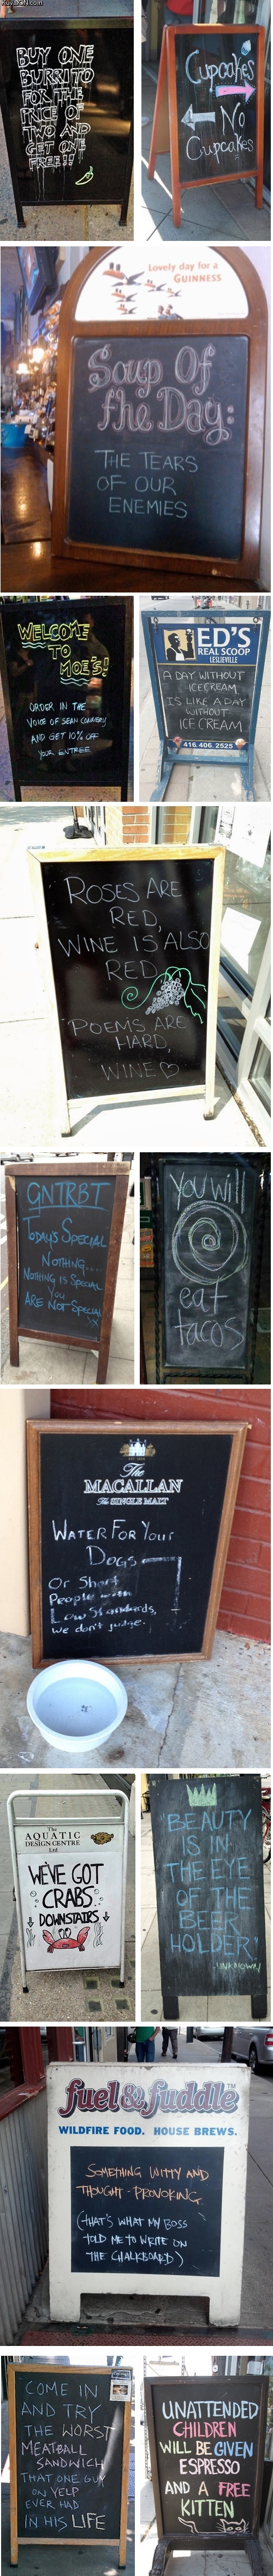 KuvatON.com
BUY ONE
BURRITO
FOR THE
PRICE OF
TWO AND
GET ONE
FREE!!
Cupcakes
No
Cupcakes
Lovely day for a
GUINNESS
Soup Of
the Day:
THE TEARS
OF OUR
ENEMIES
WELCOME
TO
MOE'S!
ORDER IN THE
VOICE OF SEAN CONNERY
AND GET 10% OFF
YOUR ENTREE
ED'S
REAL SCOOP
LESLIEVILLE
A DAY WITHOUT
ICECREAM
IS LIKE A DAY
WITHOUT
ICE CREAM
416.406.2525
ROSES ARE
RED,
WINE IS ALSO
RED
POEMS ARE
HARD,
WINE♡
GNTRBT
TODAY'S SPECIAL
NOTHING....
NOTHING IS SPECIAL
YOU
ARE NOT SPECIAL
XX
YOU WILL
eat
tacos
The
MACALLAN
The SINGLE MALT
WATER FOR YOUR
DOGS
Or Short
People with
Low Standards,
we don't judge.
The
AQUATIC
DESIGN CENTRE
Ltd
WE'VE GOT
CRABS
DOWNSTAIRS
"BEAUTY
IS IN
THE EYE
OF THE
BEER
HOLDER"
-UNKNOWN
fuel & fuddle™
WILDFIRE FOOD. HOUSE BREWS.
SOMETHING WITTY AND
THOUGHT-PROVOKING
(THAT'S WHAT MY BOSS
TOLD ME TO WRITE ON
THE CHALKBOARD)
COME IN
AND TRY
THE WORST
MEATBALL
SANDWICH
THAT ONE GUY
ON YELP
EVER HAD
IN HIS LIFE
UNATTENDED
CHILDREN
WILL BE GIVEN
ESPRESSO
AND A FREE
KITTEN